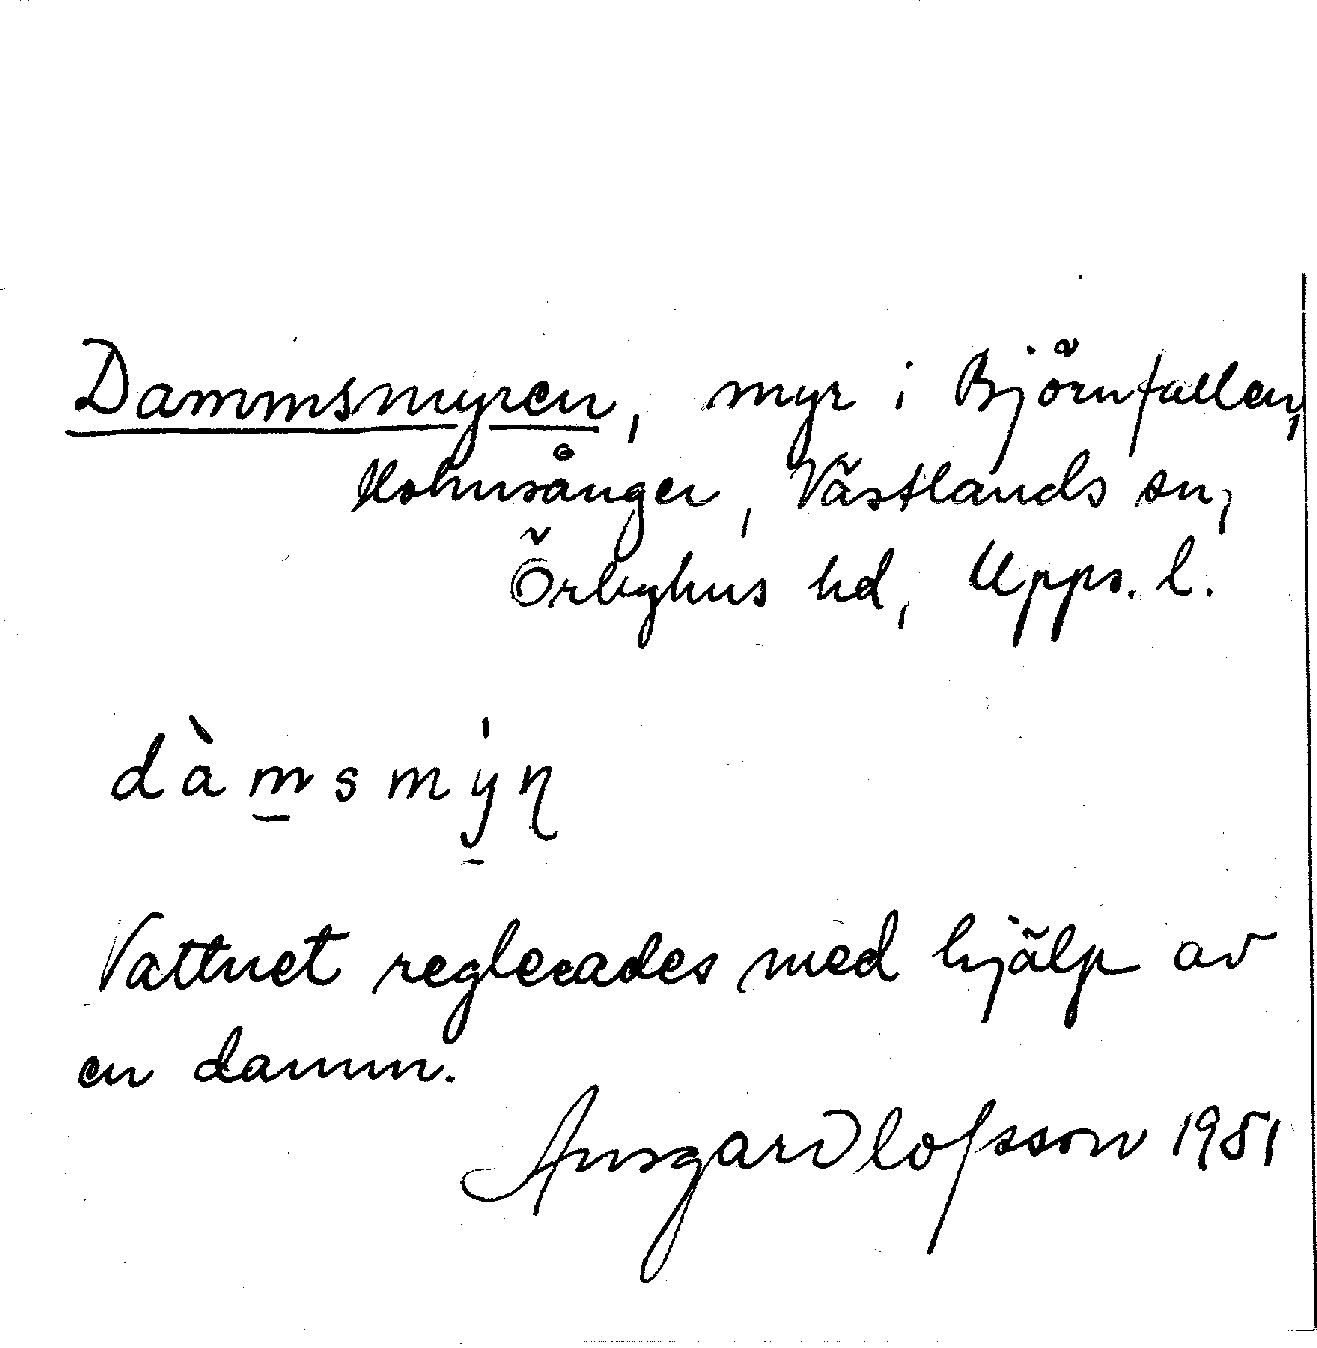 Dammsmyren, myr i Björnfallen,
Holmsånger, Västlands sn,
Örbyhus hd, Upps. l.
dàm̲smy̲̍ɳ
Vattnet reglerades med hjälp av
en damm.
Ansgar Olofsson 1951